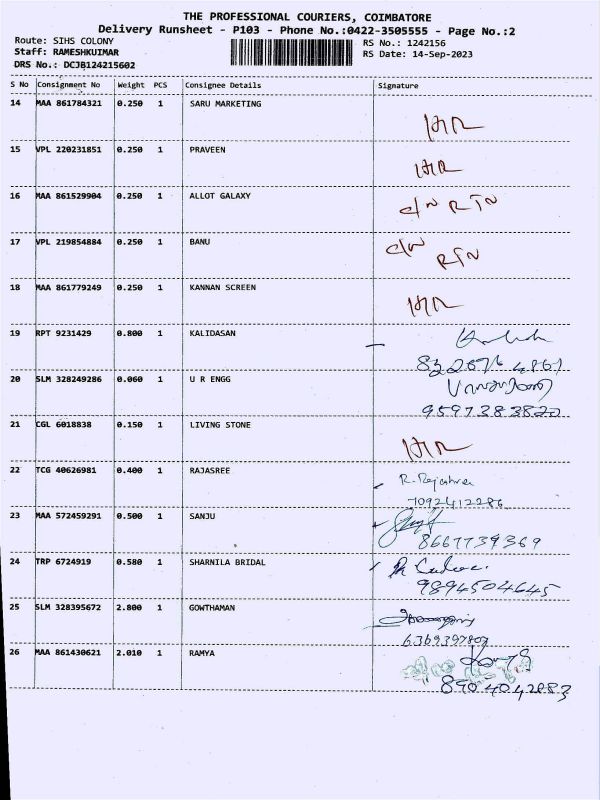 THE PROFESSIONAL COURIERS, COIMBATORE
Delivery Runsheet - P103 - Phone No.:0422-3505555 - Page No.:2
Route: SIHS COLONY RS No.: 1242156
Staff: RAMESHKUIMAR RS Date: 14-Sep-2023
DRS No.: DCJB124215602
S No Consignment No Weight PCS Consignee Details Signature
14 MAA 861784321 0.250 1 SARU MARKETING
15 VPL 220231851 0.250 1 PRAVEEN
16 MAA 861529904 0.250 1 ALLOT GALAXY
RTN
17 VPL 219854884 0.250 1 BANU
RTN
18 MAA 861779249 0.250 1 KANNAN SCREEN
19 RPT 9231429 0.800 1 KALIDASAN
20 SLM 328249286 0.060 1 U R ENGG
9597383820
21 CGL 6018838 0.150 1 LIVING STONE
22 TCG 40626981 0.400 1 RAJASREE
7092412286
23 MAA 572459291 0.500 1 SANJU
8667739369
24 TRP 6724919 0.580 1 SHARNILA BRIDAL
9894504645
25 SLM 328395672 2.800 1 GOWTHAMAN
26 MAA 861430621 2.010 1 RAMYA